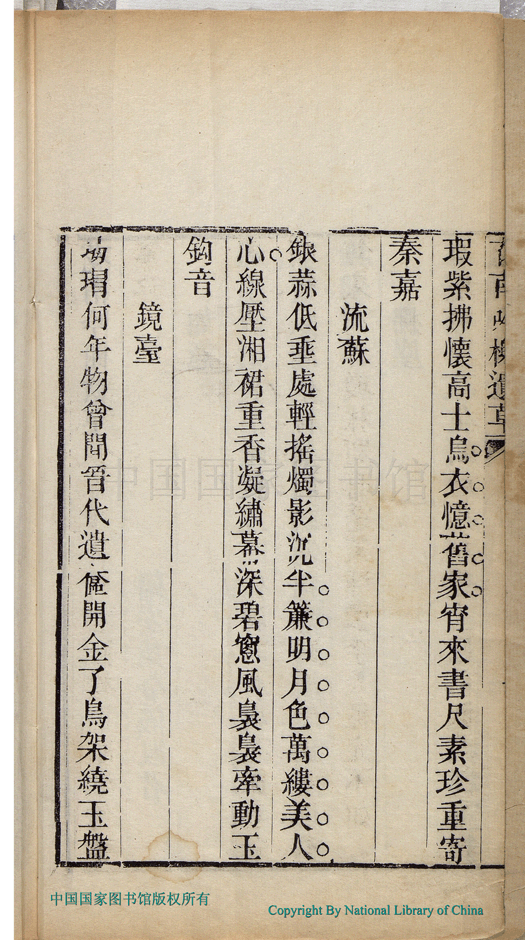 遺草
瑕紫拂懷高士烏衣憶舊家宵來書尺素珍重寄
秦嘉
流蘇
銀蒜低垂處輕搖燭影沉半簾明月色萬縷美人
心線壓湘裙重香凝繡幕深碧窻風裊裊牽動玉
鈎音
鏡臺
瑁何年物曾聞晉代遺奩開金了鳥架繞玉盤
中国国家图书馆
中国国家图书馆版权所有
Copyright By National Library of China